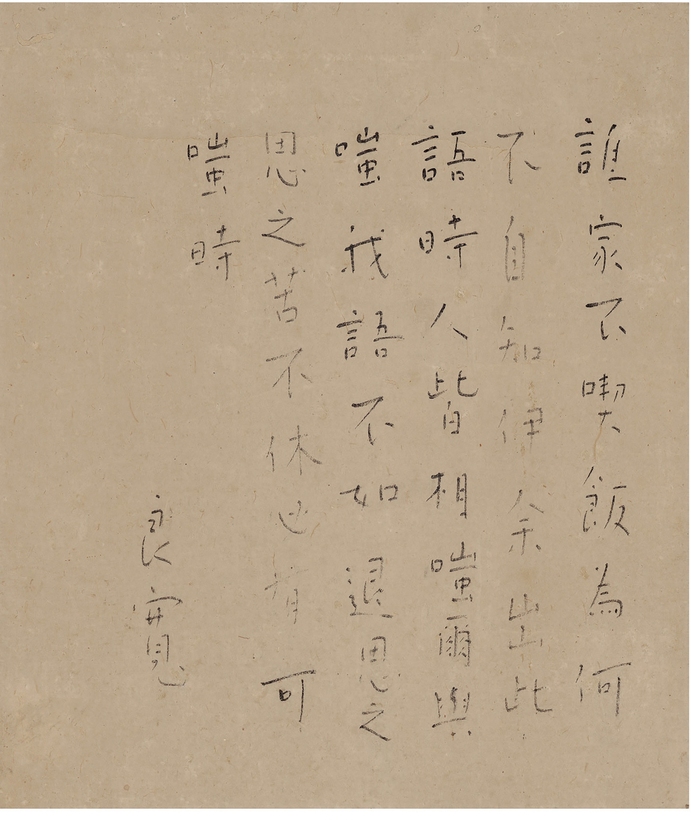 誰家不喫飯為何
不自知伊余出此
語時人皆相嗤爾與
嗤我語不如退思之
思之若不休必有可
嗤時
良寛